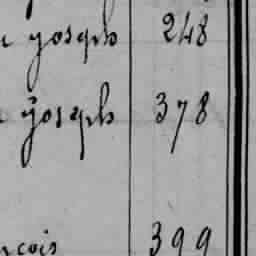 Joseph 248
Joseph 378
ncois 399